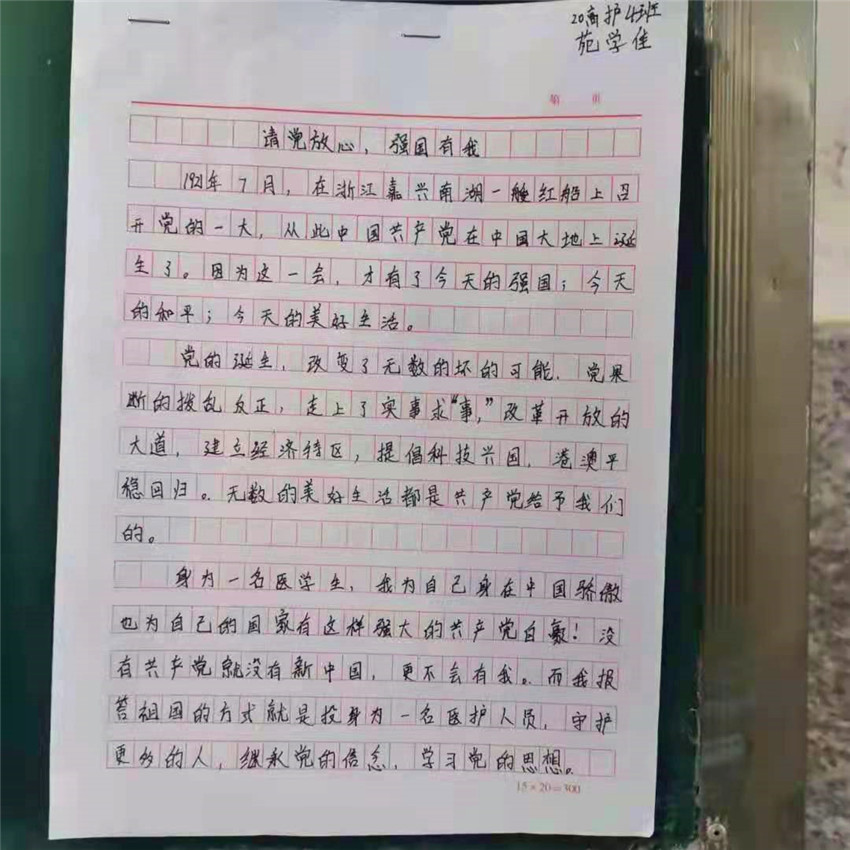 20高护4班
苑学佳
第 页
请党放心，强国有我
1921年7月，在浙江嘉兴南湖一艘红船上召
开党的一大，从此中国共产党在中国大地上诞
生了。因为这一会，才有了今天的强国；今天
的和平；今天的美好生活。
党的诞生，改变了无数的坏的可能，党果
断的拨乱反正，走上了实事求“事，”改革开放的
大道，建立经济特区，提倡科技兴国，港澳平
稳回归。无数的美好生活都是共产党给予我们
的。
身为一名医学生，我为自己身在中国骄傲
也为自己的国家有这样强大的共产党自豪！没
有共产党就没有新中国，更不会有我。而我报
答祖国的方式就是投身为一名医护人员，守护
更多的人，继承党的信念，学习党的思想。
15×20=300